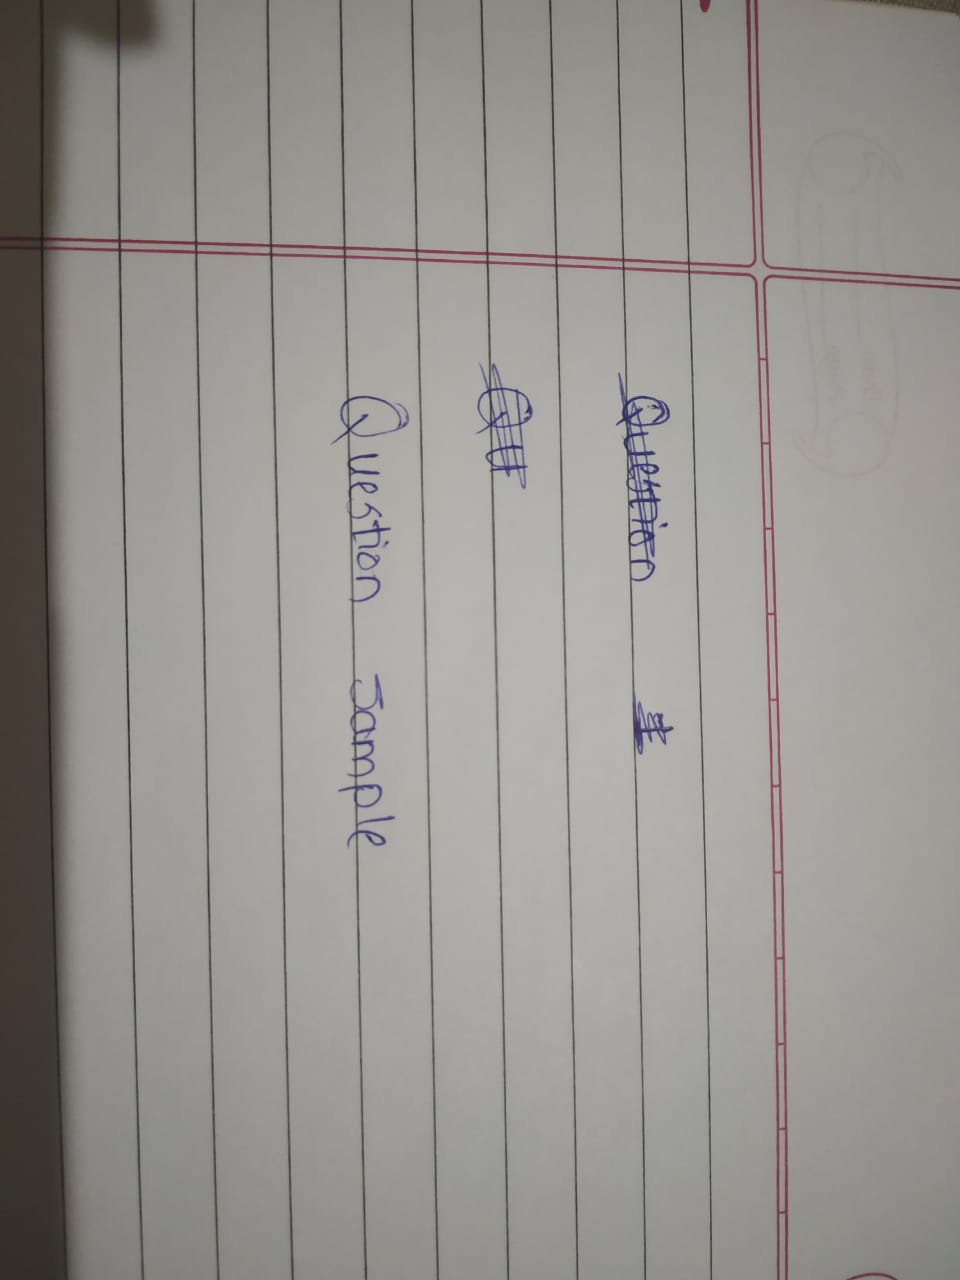 Question 1
Qu
Question Sample